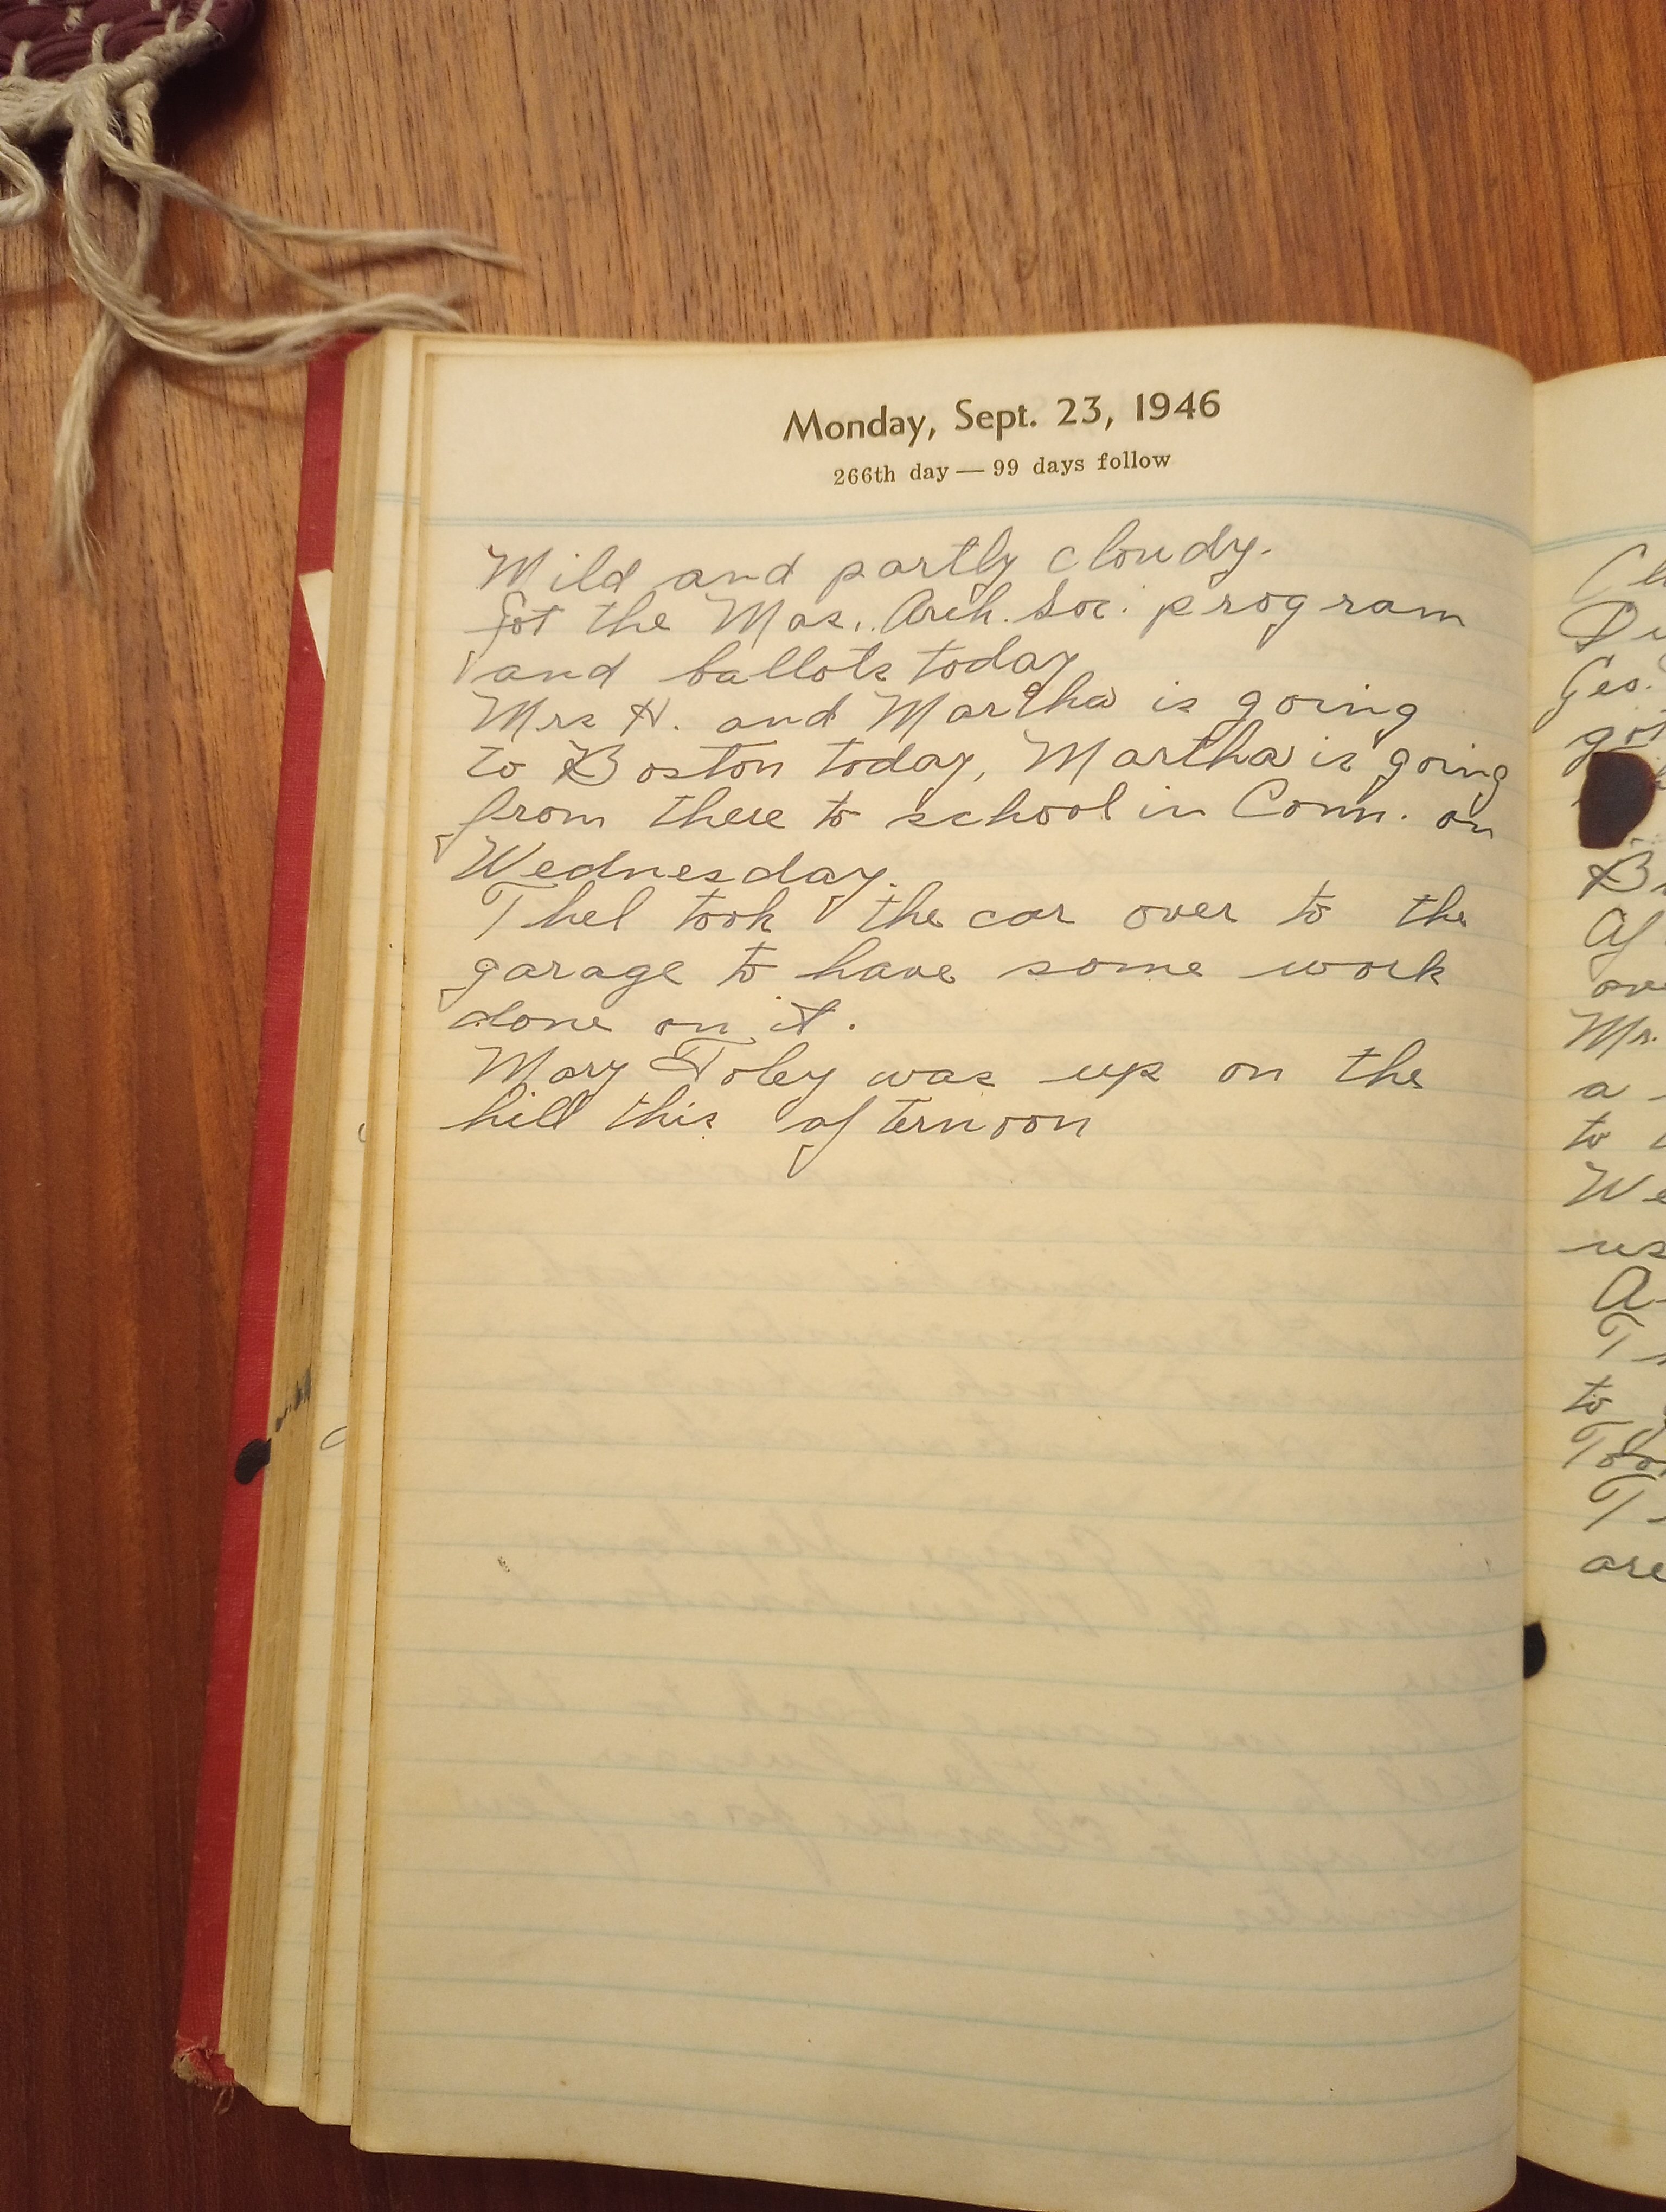 Monday, Sept. 23, 1946
266th day — 99 days follow
Mild and partly cloudy.
Got the Mas. Arch. Soc. program
and ballots today
Mrs H. and Martha is going
to Boston today, Martha is going
from there to school in Conn. on
Wednesday.
Thel took the car over to the
garage to have some work
done on it.
Mary Foley was up on the
hill this afternoon
Geo.
got
Mr.
a
to
We
us
to
are